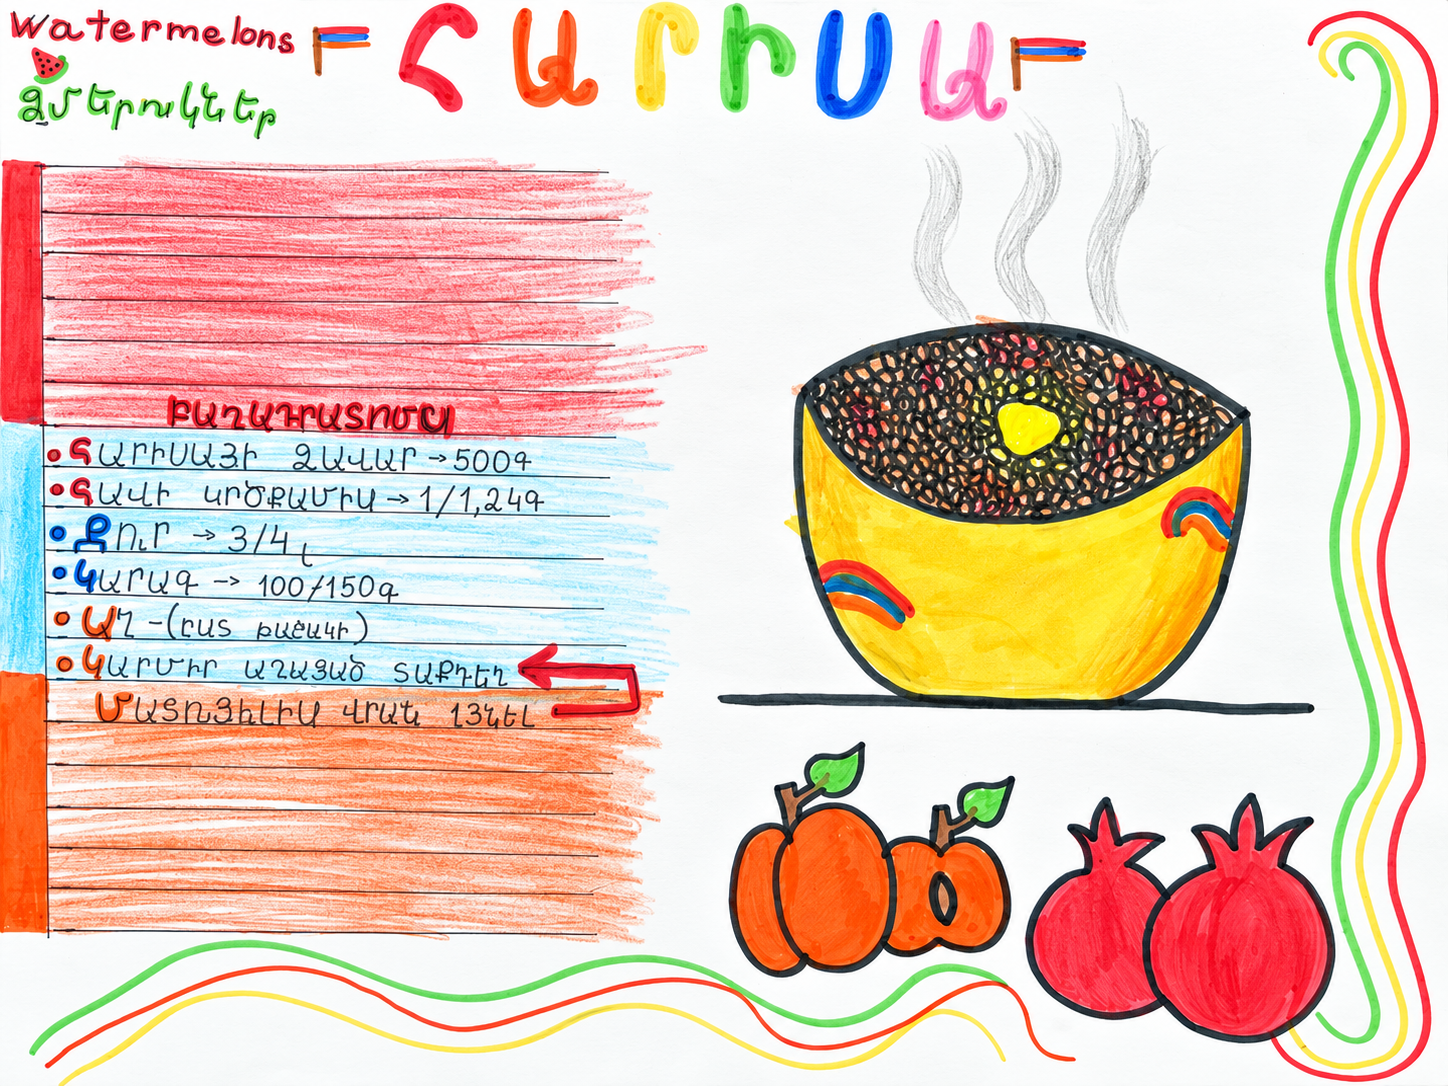 watermelons
Ձմերուկներ
ՀԱՐԻՍԱ
ԲԱՂԱԴՐԱՏՈՄՍ
• ՀԱՐԻՍԱՅԻ ՁԱՎԱՐ → 500գ
• ՀԱՎԻ ԿՐԾՔԱՄԻՍ → 1/1,24գ
• ՋՈՒՐ → 3/4 լ
• ԿԱՐԱԳ → 100/150գ
• ԱՂ - (ԸՍՏ ՃԱՇԱԿԻ)
• ԿԱՐՄԻՐ ԱՂԱՑԱԾ ՏԱՔԴԵՂ
ՄԱՏՈՒՑԵԼԻՍ ՎՐԱՆ